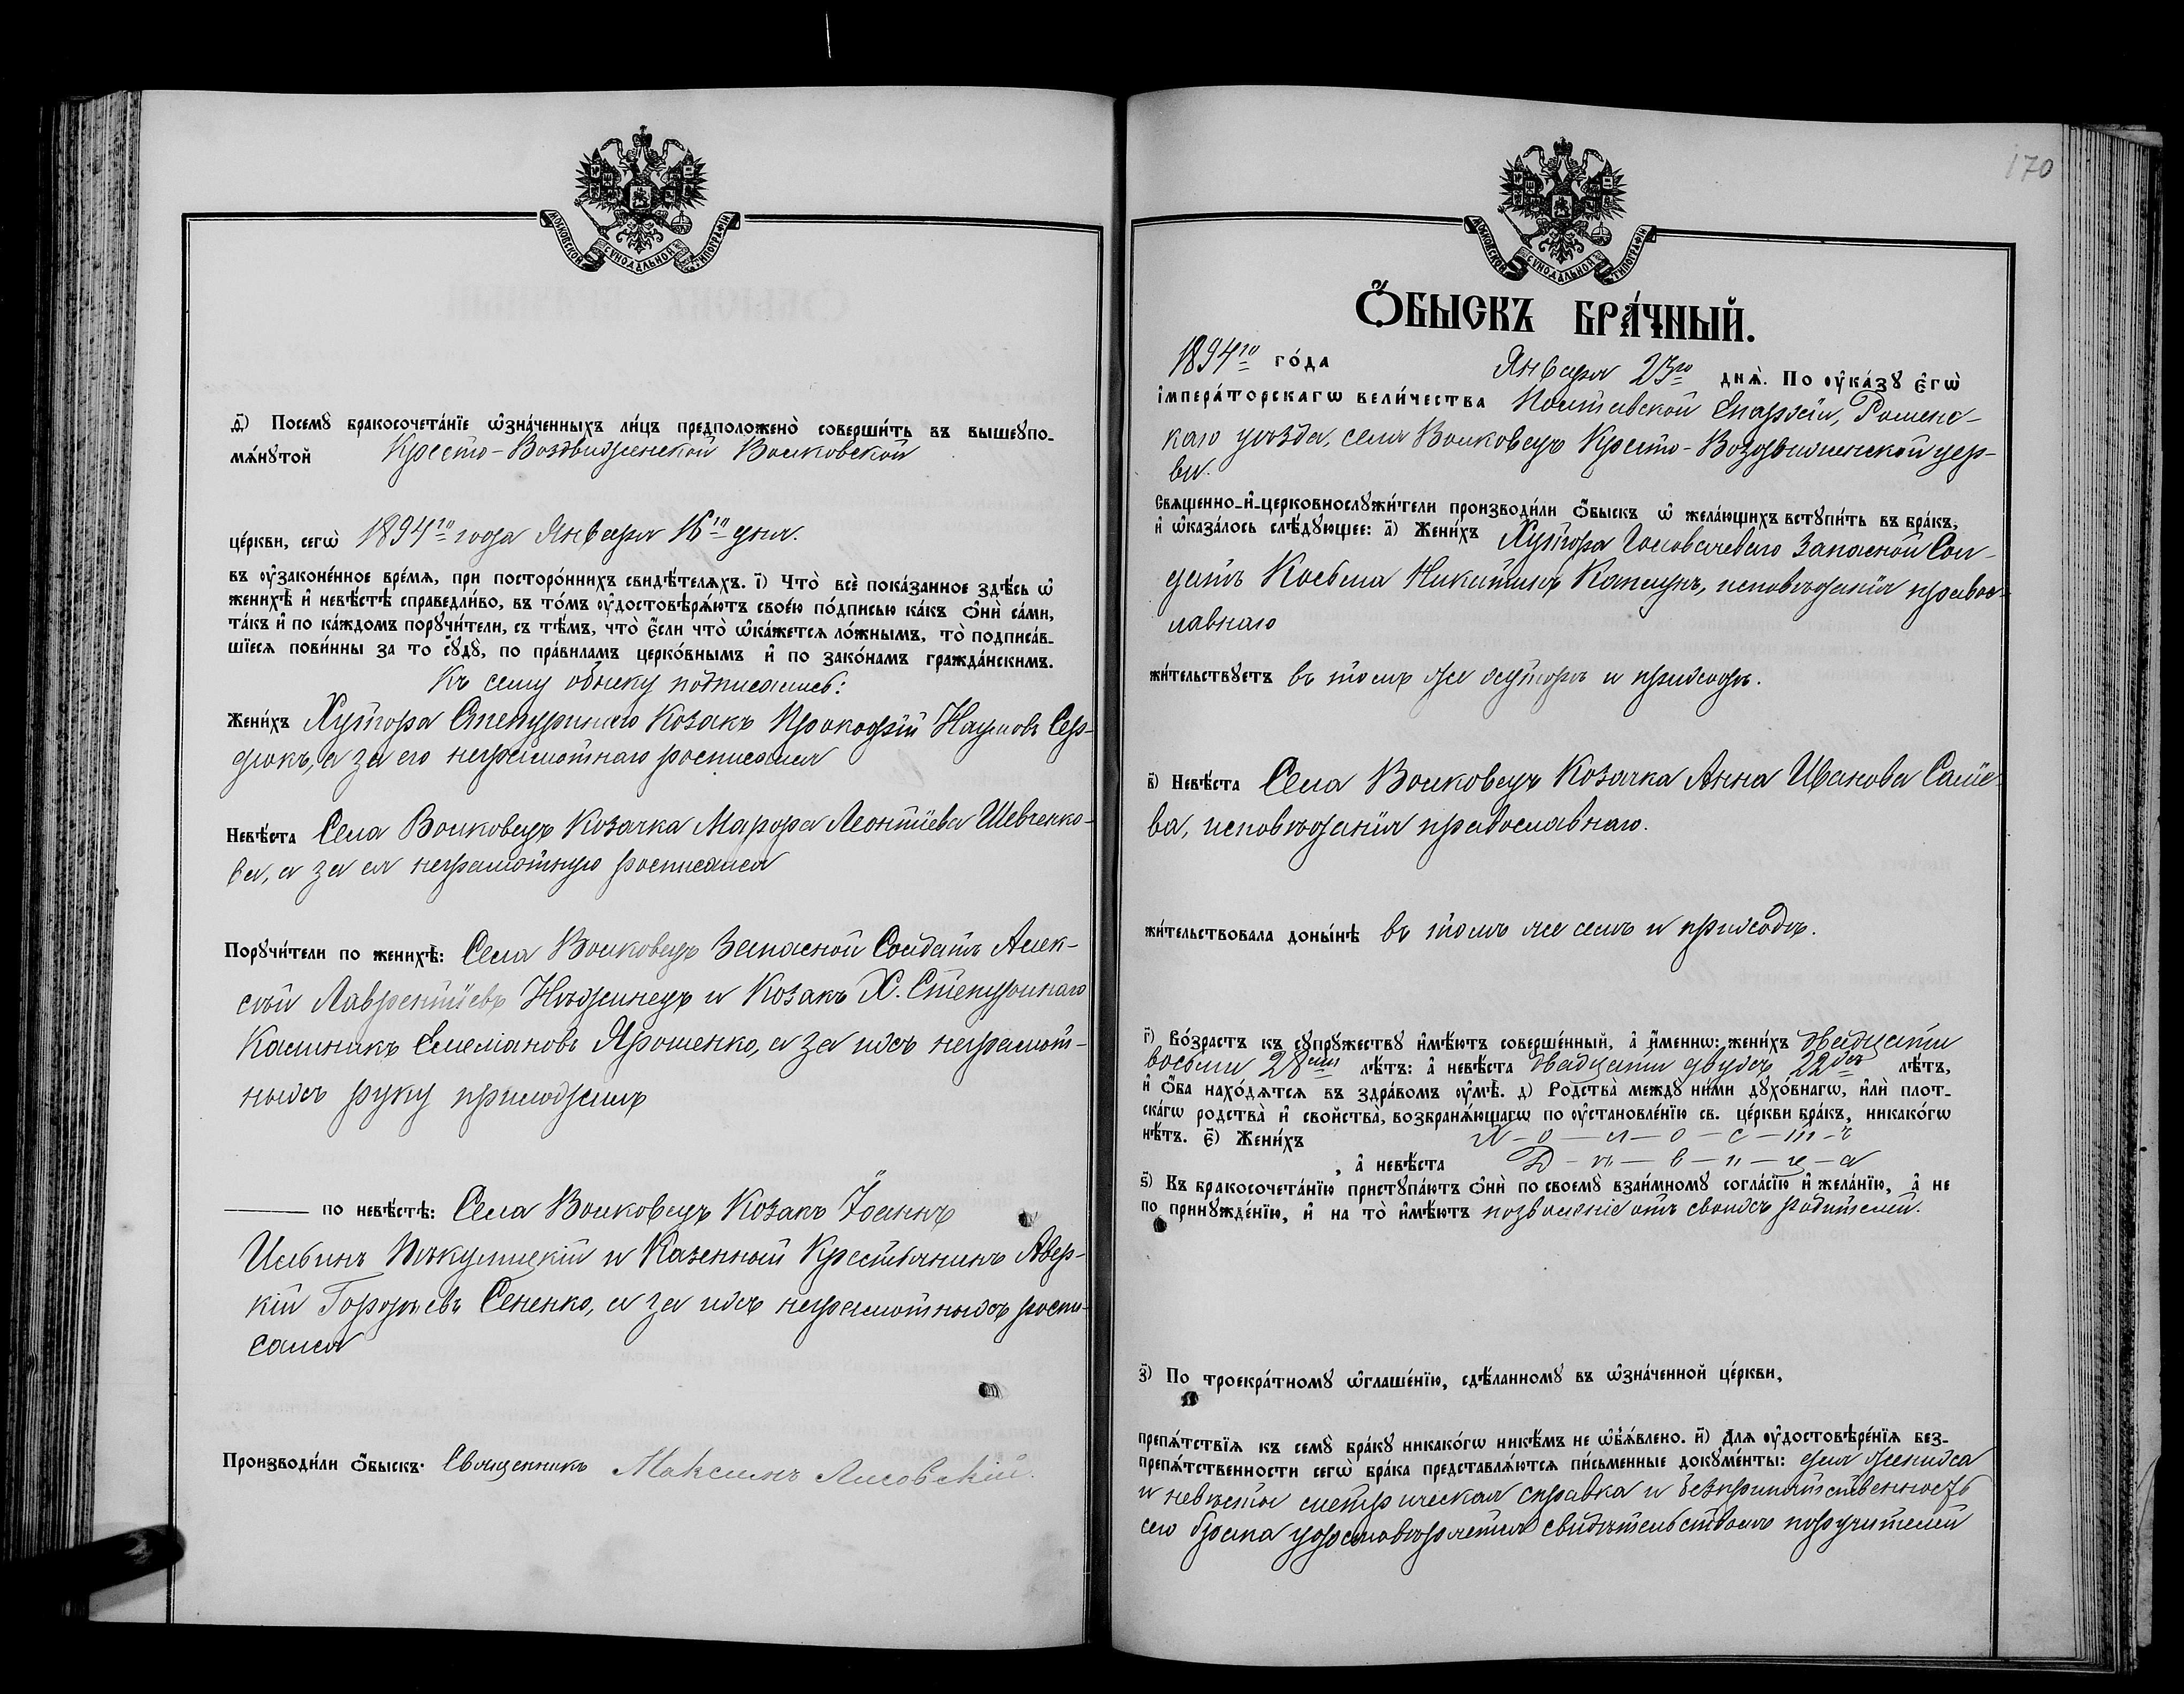 МОСКОВСКОЙ СѴНОДАЛЬНОЙ ТИПОГРАФІИ
д҃і) Посемꙋ бракосочета́нїе ѡ҆зна́ченныхъ ли́цъ предположено̀ соверши́ть въ вышеꙋпо-
мѧ́нꙋтой Кресто-Воздвиженской Волковской
це́ркви, сегѡ̀ 1894го года Января 16го дня.
въ ᲂу҆законе́нное вре́мѧ, при посторо́ннихъ свидѣ́телѧхъ. і҃) Что̀ всѐ пока́занное здѣ́сь ѡ҆
женихѣ̀ и҆ невѣ́стѣ справедли́во, въ то́мъ ᲂу҆достовѣрѧ́ютъ свое́ю по́дписью ка́къ ѻ҆нѝ са́ми,
та́къ и҆ по ка́ждомъ порꙋчи́тели, съ тѣ́мъ, что̀ є҆́сли что̀ ѡ҆ка́жетсѧ ло́жнымъ, то̀ подписа́в-
шїесѧ пови́нны за то̀ сꙋдꙋ̀, по пра́виламъ церко́внымъ и҆ по зако́намъ гражда́нскимъ.
Къ сему обыску подписались:
Жени́хъ Хутора Степуриного Козакъ Прокофій Наумовъ Сер-
дюкъ, а за его неграмотнаго росписался
Невѣ́ста Села Волковецъ Козачка Марфа Леонтіева Шевченко-
ва, а за ея неграмотную росписался
Порꙋчи́тели по женихѣ̀: Села Волковецъ Запасной Солдатъ Алек-
сѣй Лаврентіевъ Нѣжинецъ и Козакъ Х. Степуринаго
Калиникъ Емеліановъ Ярошенко, а за ихъ неграмот-
ныхъ руку приложилъ
по невѣ́стѣ: Села Волковецъ Козакъ Іоаннъ
Ильинъ и Казенный Крестьянинъ Авер-
кій Гордѣевъ Сененко, а за ихъ неграмотныхъ роспи-
сался
Производи́ли ѻ҆́быскъ: Священникъ Максимъ Лисовскій.
170
МОСКОВСКОЙ СѴНОДАЛЬНОЙ ТИПОГРАФІИ
Ѻ҆́БЫСКЪ БРА́ЧНЫЙ.
1894го го́да Января 23го днѧ̀. По ᲂу҆ка́зꙋ є҆гѡ̀
і҆мпера́торскагѡ вели́чества Полтавской Епархіи, Роменс-
каго уѣзда, села Волковецъ Кресто-Воздвиженской цер-
кви.
Свѧщенно-и҆-церковнослꙋжи́тели производи́ли ѻ҆́быскъ ѡ҆ жела́ющихъ встꙋпи́ть въ бра́къ,
и҆ ѡ҆каза́лось слѣ́дꙋющее: а҃) Жени́хъ Хутора Головачеваго Запасной Сол-
датъ Косьма Никитинъ Капаунъ, исповѣданія правос-
лавнаго
жи́тельствꙋетъ въ томъ же хуторѣ и приходѣ.
в҃) Невѣ́ста Села Волковецъ Козачка Анна Иванова Саліе-
ва, исповѣданія православнаго.
жи́тельствовала доны́нѣ въ томъ же селѣ и приходѣ.
г҃) Во́зрастъ къ сꙋпрꙋ́жествꙋ и҆мѣ́ютъ соверше́нный, а҆ и҆́меннѡ: жени́хъ двадцати
восьми 28ми лѣ́тъ: а҆ невѣ́ста двадцати двухъ 22ухъ лѣ́тъ,
и҆ ѻ҆́ба нахо́дѧтсѧ въ здра́вомъ ᲂу҆мѣ̀. д҃) Родства̀ междꙋ ни́ми дꙋхо́внагѡ, и҆лѝ плот-
ска́гѡ родства̀ и҆ свойства̀, возбранѧ́ющагѡ по ᲂу҆становле́нїю св. це́ркви бра́къ, никако́гѡ
нѣ́тъ. є҃) Жени́хъ Х-о-л-о-с-т-ъ
, а҆ невѣ́ста Д-ѣ-в-и-ц-а
ѕ҃) Къ бракосочета́нїю пристꙋпа́ютъ ѻ҆нѝ по своемꙋ̀ взаи́мномꙋ согла́сїю и҆ жела́нїю, а҆ не
по принꙋжде́нїю, и҆ на то̀ и҆мѣ́ютъ позволеніе отъ своихъ родителей.
з҃) По троекра́тномꙋ ѡ҆глаше́нїю, сдѣ́ланномꙋ въ ѡ҆зна́ченной це́ркви,
препѧ́тствїѧ къ семꙋ̀ бра́кꙋ никако́гѡ никѣ́мъ не ѡ҆б̾ѧ́влено. и҃) Длѧ ᲂу҆достовѣре́нїѧ без-
препѧ́тственности сегѡ̀ бра́ка представлѧ́ютсѧ пи́сьменные докꙋме́нты: для жениха
и невѣсты метрическая справка и безпрепятственность
сего брака удостовѣряется свидѣтельствомъ поручителей